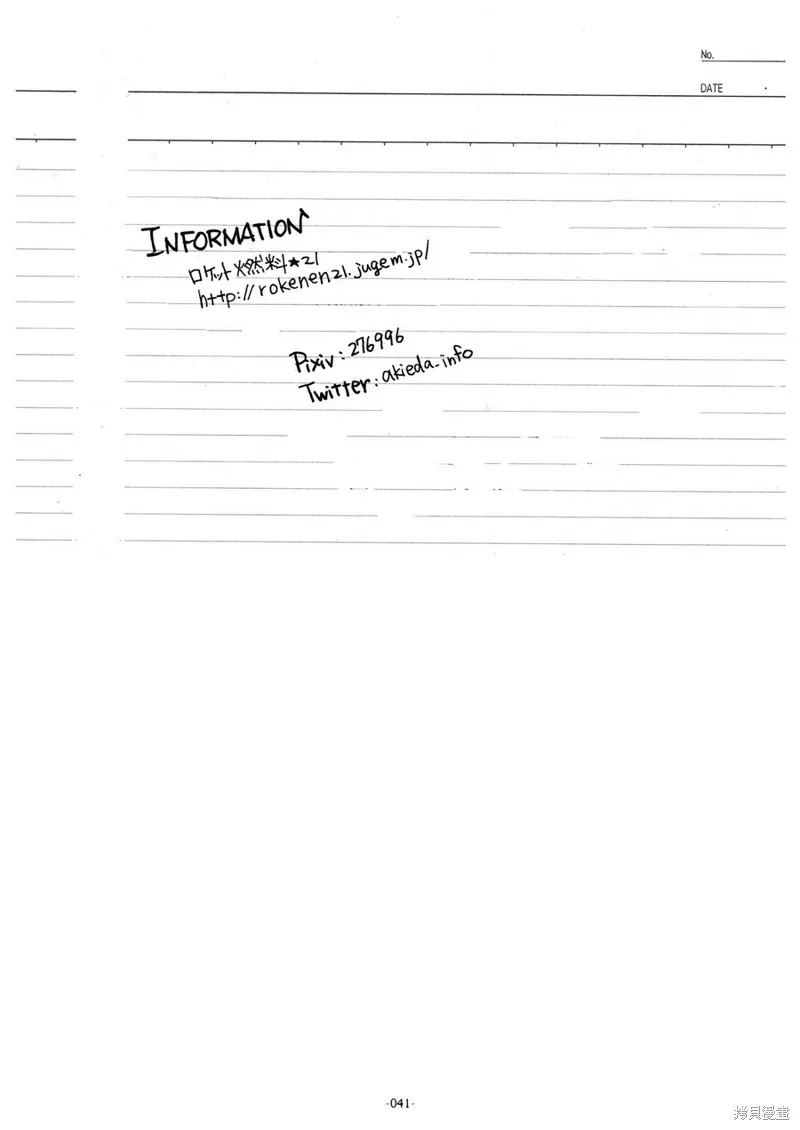 No.
DATE
INFORMATION
ロケット燃料★21
http://rokenen21.jugem.jp/
Pixiv:276996
Twitter:akieda_info
-041-
拷貝漫畫